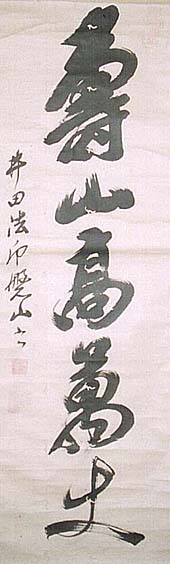 壽山高萬丈
井田法印覺山書